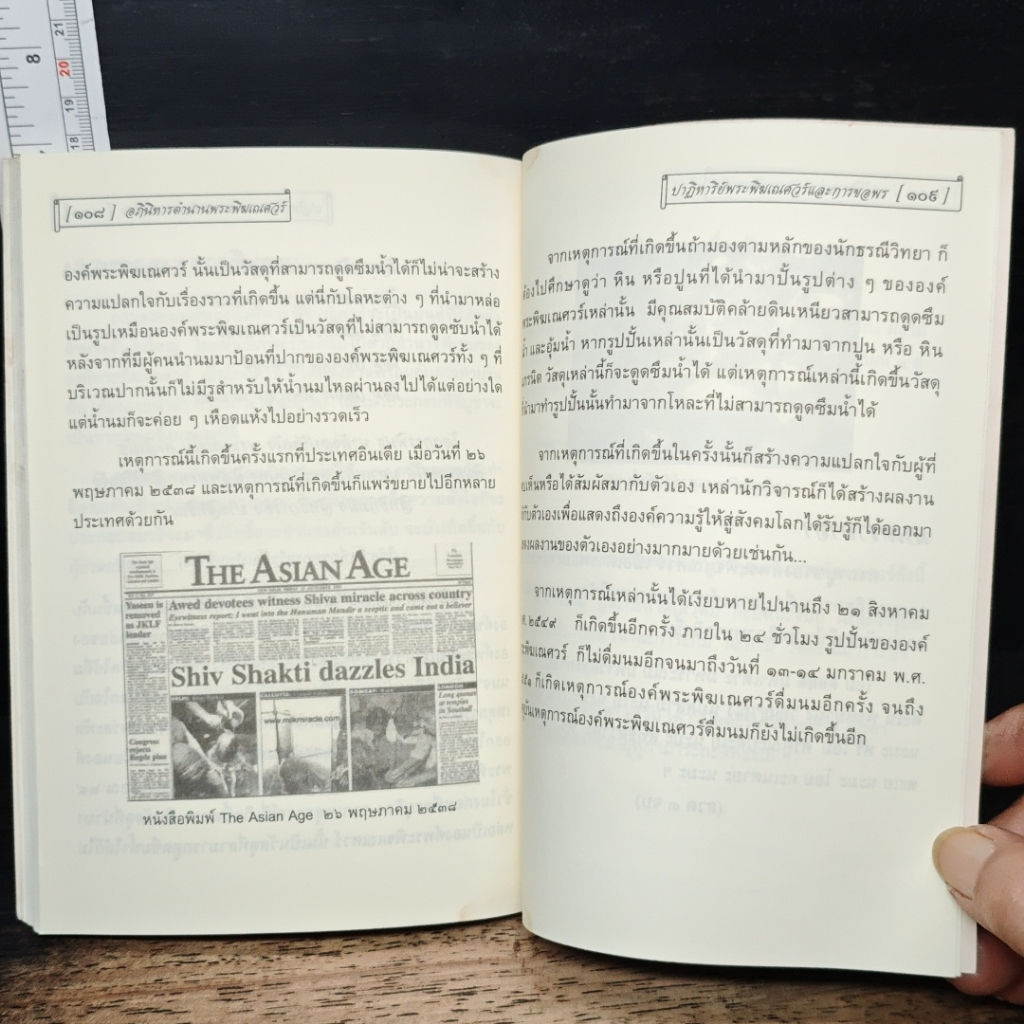 [๑๐๘] อภินิหารตำนานพระพิฆเณศวร์
องค์พระพิฆเณศวร์ นั้นเป็นวัสดุที่สามารถดูดซึมน้ำได้ก็ไม่น่าจะสร้าง
ความแปลกใจกับเรื่องราวที่เกิดขึ้น แต่นี่กับโลหะต่าง ๆ ที่นำมาหล่อ
เป็นรูปเหมือนองค์พระพิฆเณศวร์เป็นวัสดุที่ไม่สามารถดูดซับน้ำได้
หลังจากที่มีผู้คนนำนมมาป้อนที่ปากขององค์พระพิฆเณศวร์ทั้ง ๆ ที่
บริเวณปากนั้นก็ไม่มีรูสำหรับให้น้ำนมไหลผ่านลงไปได้แต่อย่างใด
แต่น้ำนมก็จะค่อย ๆ เหือดแห้งไปอย่างรวดเร็ว
เหตุการณ์นี้เกิดขึ้นครั้งแรกที่ประเทศอินเดีย เมื่อวันที่ ๒๖
พฤษภาคม ๒๕๓๘ และเหตุการณ์ที่เกิดขึ้นก็แพร่ขยายไปอีกหลาย
ประเทศด้วยกัน
THE ASIAN AGE
Awed devotees witness Shiva miracle across country
Eyewitness report: I went into the Hanuman Mandir a sceptic and came out a believer
Yaseen is
removed
as JKLF
leader
Shiv Shakti dazzles India
DELHI
CALCUTTA
BOMBAY
LONDON
Long queues
at temples
in Southall
www.milkmiracle.com
Congress
rejects
หนังสือพิมพ์ The Asian Age ๒๖ พฤษภาคม ๒๕๓๘
ปาฏิหาริย์พระพิฆเณศวร์และการขอพร [๑๐๙]
จากเหตุการณ์ที่เกิดขึ้นถ้ามองตามหลักของนักธรณีวิทยา ก็
ต้องไปศึกษาดูว่า หิน หรือปูนที่ได้นำมาปั้นรูปต่าง ๆ ขององค์
พระพิฆเณศวร์เหล่านั้น มีคุณสมบัติคล้ายดินเหนียวสามารถดูดซึม
น้ำ และอุ้มน้ำ หากรูปปั้นเหล่านั้นเป็นวัสดุที่ทำมาจากปูน หรือ หิน
วัสดุเหล่านี้ก็จะดูดซึมน้ำได้ แต่เหตุการณ์เหล่านี้เกิดขึ้นวัสดุ
ที่นำมาทำรูปปั้นนั้นทำมาจากโหละที่ไม่สามารถดูดซึมน้ำได้
จากเหตุการณ์ที่เกิดขึ้นในครั้งนั้นก็สร้างความแปลกใจกับผู้ที่
หรือได้สัมผัสมากับตัวเอง เหล่านักวิจารณ์ก็ได้สร้างผลงาน
ตัวเองเพื่อแสดงถึงองค์ความรู้ให้สู่สังคมโลกได้รับรู้ก็ได้ออกมา
ผลงานของตัวเองอย่างมากมายด้วยเช่นกัน...
จากเหตุการณ์เหล่านั้นได้เงียบหายไปนานถึง ๒๑ สิงหาคม
๒๕๔๙ ก็เกิดขึ้นอีกครั้ง ภายใน ๒๔ ชั่วโมง รูปปั้นขององค์
พระพิฆเณศวร์ ก็ไม่ดื่มนมอีกจนมาถึงวันที่ ๑๓-๑๔ มกราคม พ.ศ.
ก็เกิดเหตุการณ์องค์พระพิฆเณศวร์ดื่มนมอีกครั้ง จนถึง
เหตุการณ์องค์พระพิฆเณศวร์ดื่มนมก็ยังไม่เกิดขึ้นอีก